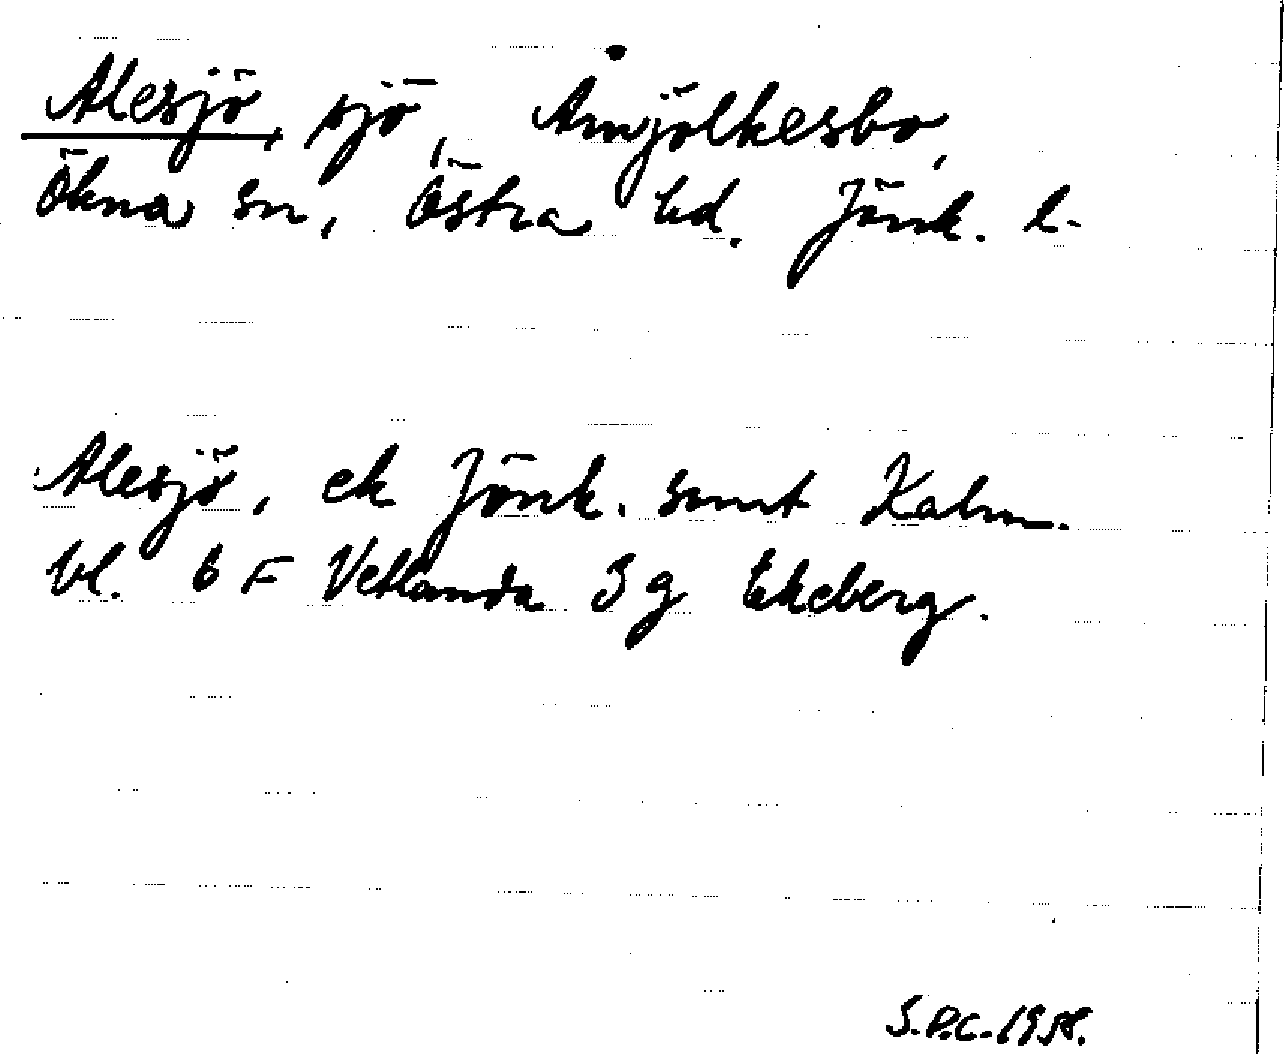 Alesjö, sjö, Åmjölkesbo,
Ökna sn, Östra hd. Jönk. l.
Alesjö, ek Jönk. samt Kalm.
bl. 6 F Vetlanda 3 g Ekeberg.
S.P.C. 1958.